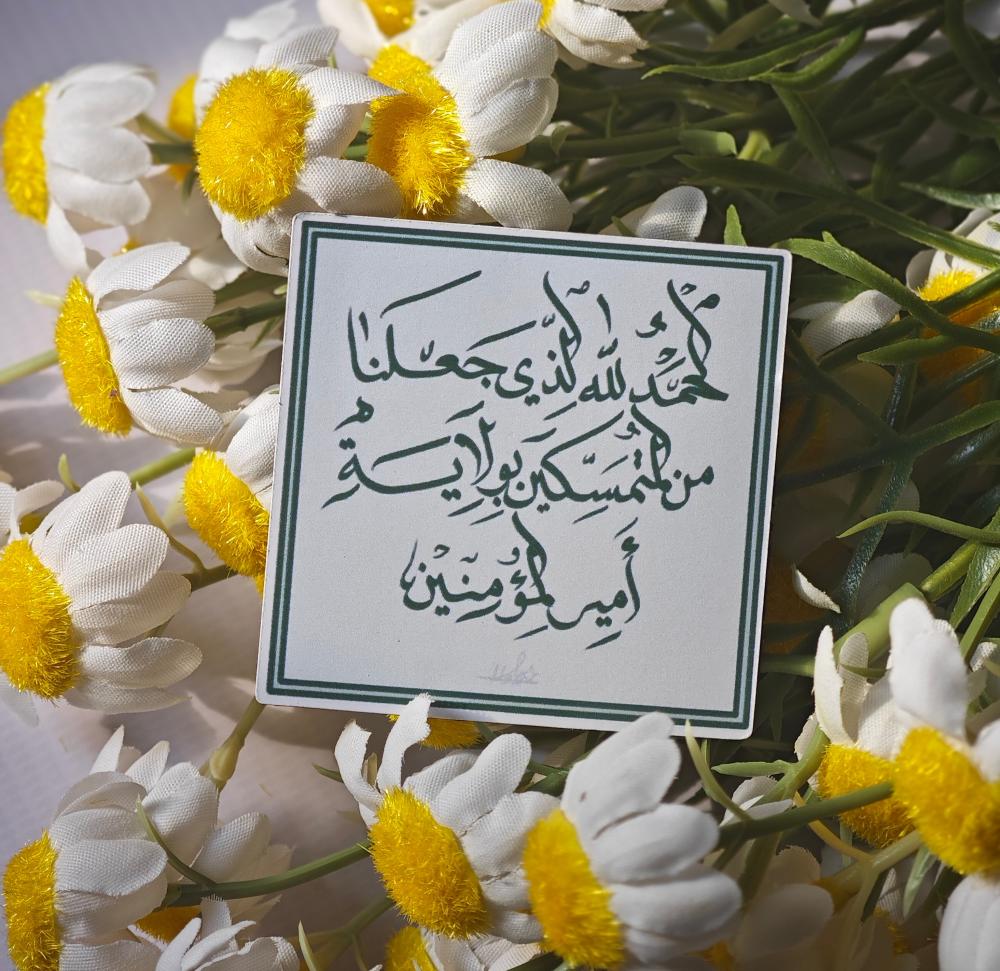 الحَمْدُ لِلّٰهِ الَّذِي جَعَلَنَا
مِنَ المُتَمَسِّكِينَ بِوِلَايَةِ
أَمِيرِ المُؤْمِنِينَ